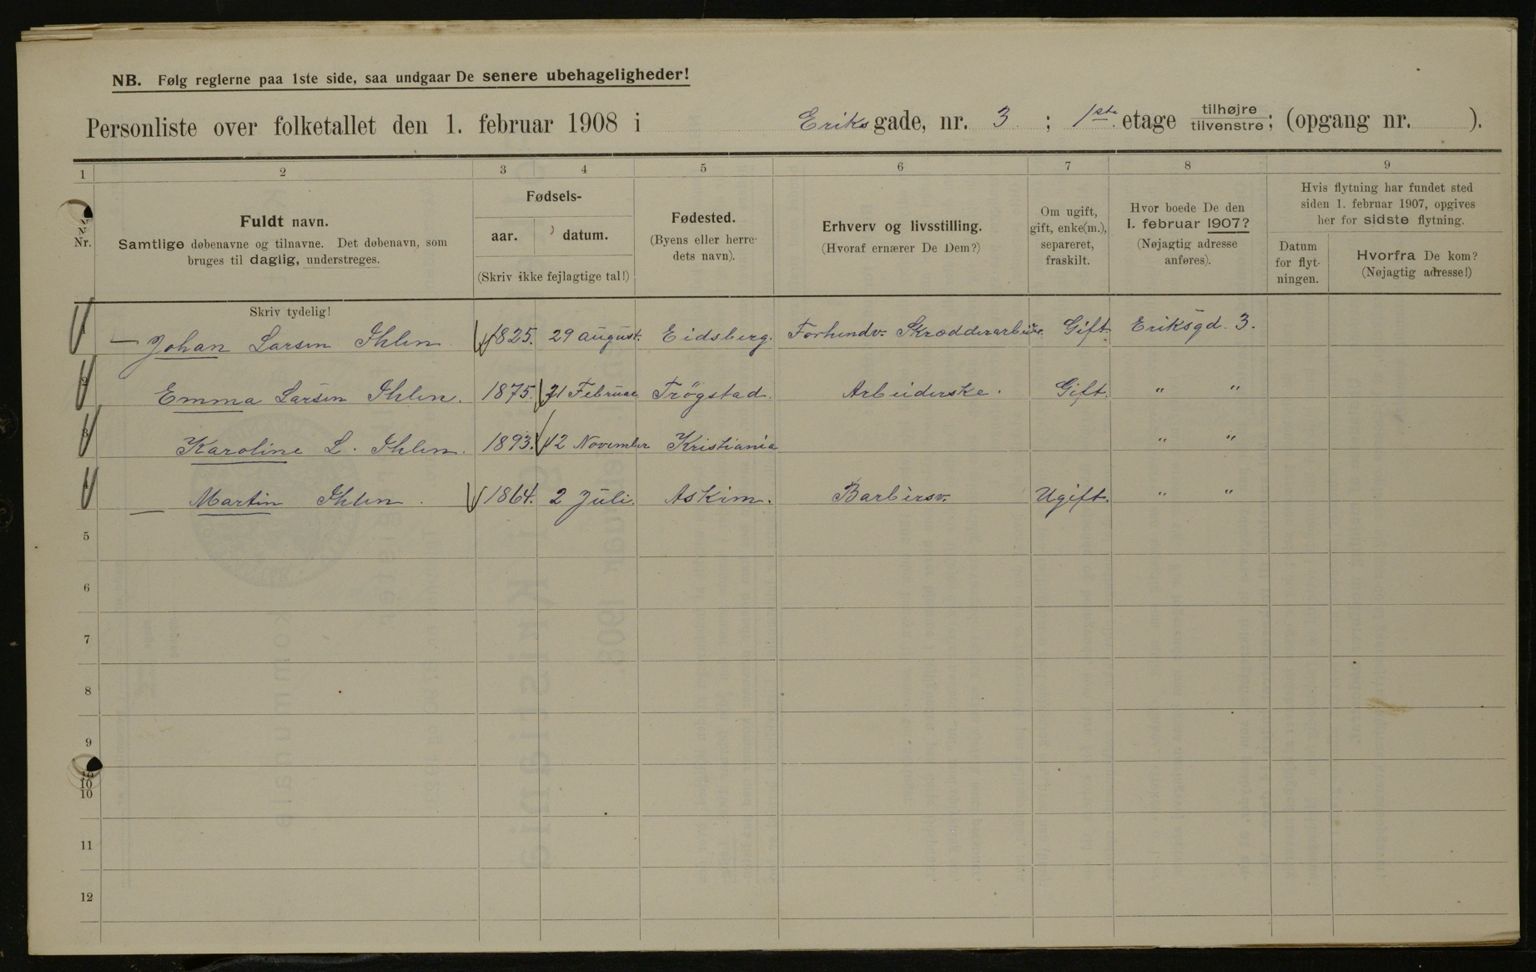 NB. Følg reglerne paa 1ste side, saa undgaar De senere ubehageligheder!
Personliste over folketallet den 1. februar 1908 i Eriks gade, nr. 3 ; 1ste etage tilhøjre tilvenstre; (opgang nr. ).
1 2 3 4 5 6 7 8 9
Nr.
Fuldt navn.
Samtlige døbenavne og tilnavne. Det døbenavn, som
bruges til daglig, understreges.
Fødsels-
aar. datum.
(Skriv ikke fejlagtige tal!)
Fødested.
(Byens eller herre-
dets navn).
Erhverv og livsstilling.
(Hvoraf ernærer De Dem?)
Om ugift,
gift, enke(m.),
separeret,
fraskilt.
Hvor boede De den
1. februar 1907?
(Nøjagtig adresse
anføres).
Hvis flytning har fundet sted
siden 1. februar 1907, opgives
her for sidste flytning.
Datum
for flyt-
ningen.
Hvorfra De kom?
(Nøjagtig adresse!)
Skriv tydelig!
Johan Larsen Ihlen 1825. 29 august. Eidsberg. Forhendv. Gift. Eriksgd. 3.
Emma Larsen Ihlen. 1875. 21 Februar Trögstad. Arbeiderske. Gift. " "
Karoline L. Ihlen. 1893. 12 November Kristiania " "
Martin Ihlen. 1864. 2 Juli. Askim. Barbersv. Ugift. " "
5
6
7
8
9
10
10
11
12